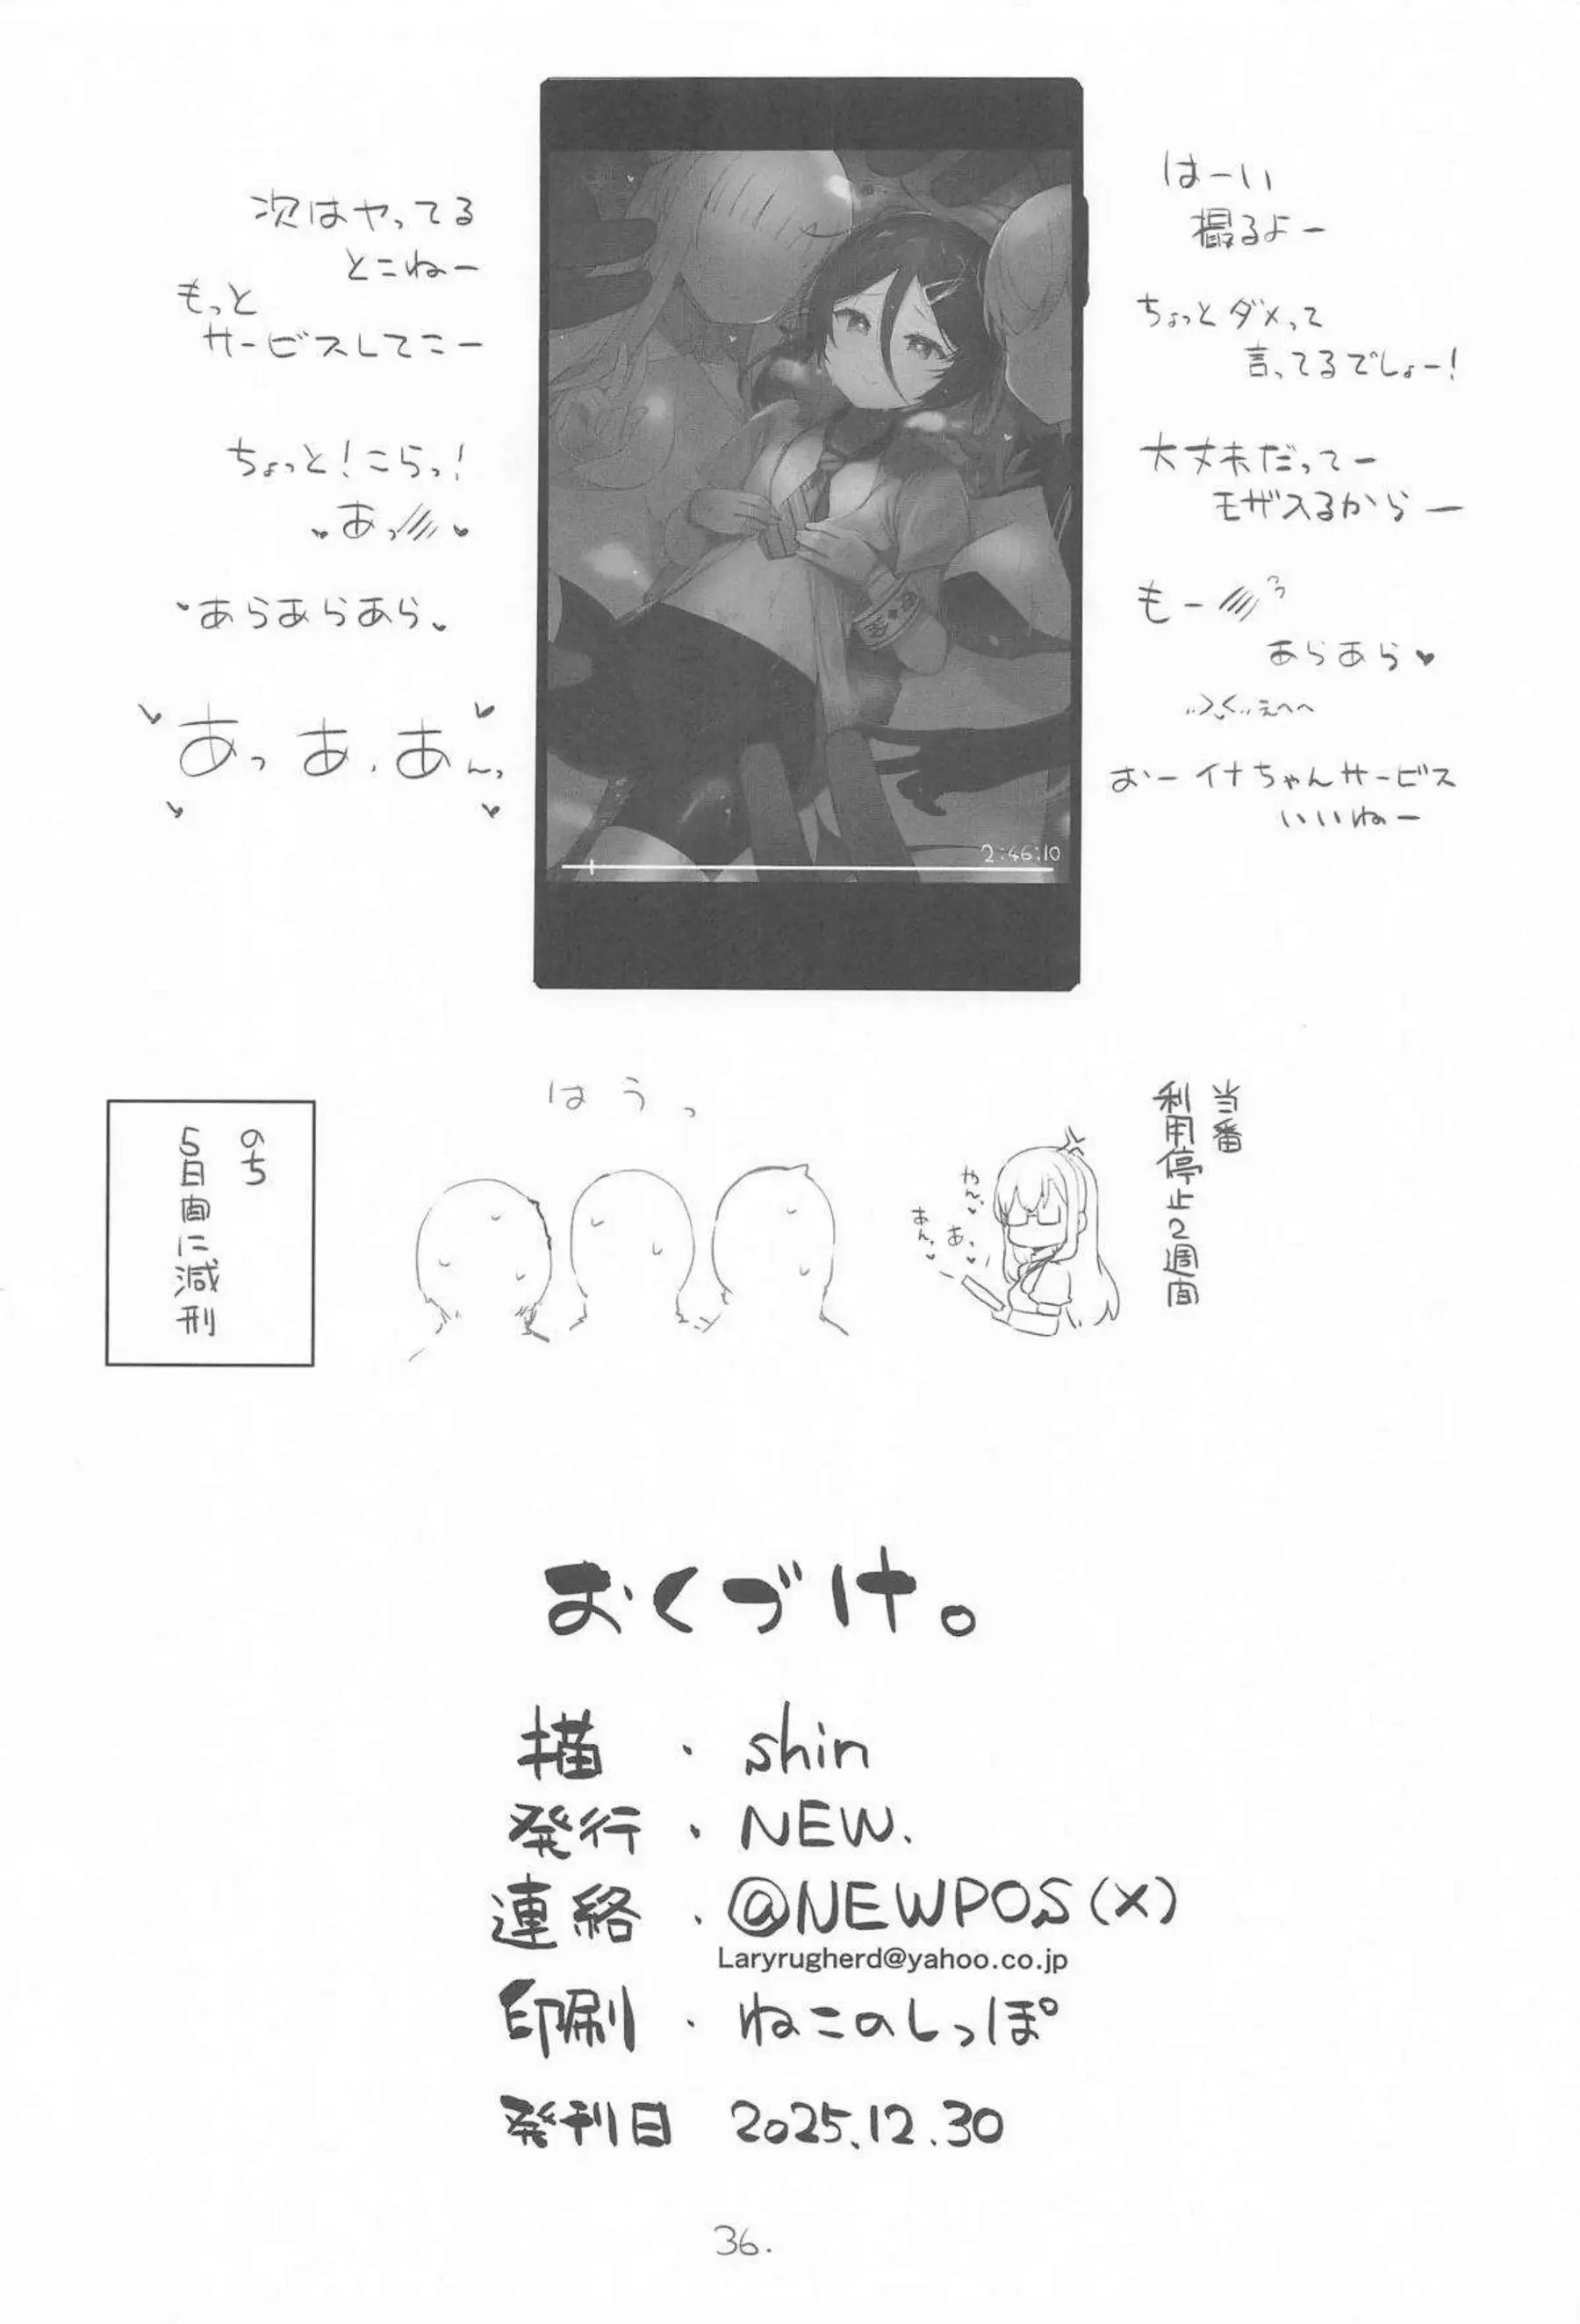 はーい
撮るよー
ちょっとダメって
言ってるでしょー!
大丈夫だってー
モザスるからー
もー
あらあら♥
えへへ
おーイナちゃんサービス
いいねー
次はヤってる
とこねー
もっと
サービスしてこー
ちょっと!こらっ!
あっ
あらあらあら
あっあ、あんっ
2:46:10
当番
利用停止2週間
やん
あっ
あん
はうっ
のち
5日間に減刑
おくづけ。
描・shin
発行・NEW.
連絡・@NEWPOS(X)
Laryrugherd@yahoo.co.jp
印刷・ねこのしっぽ
発刊日 2025.12.30
36.